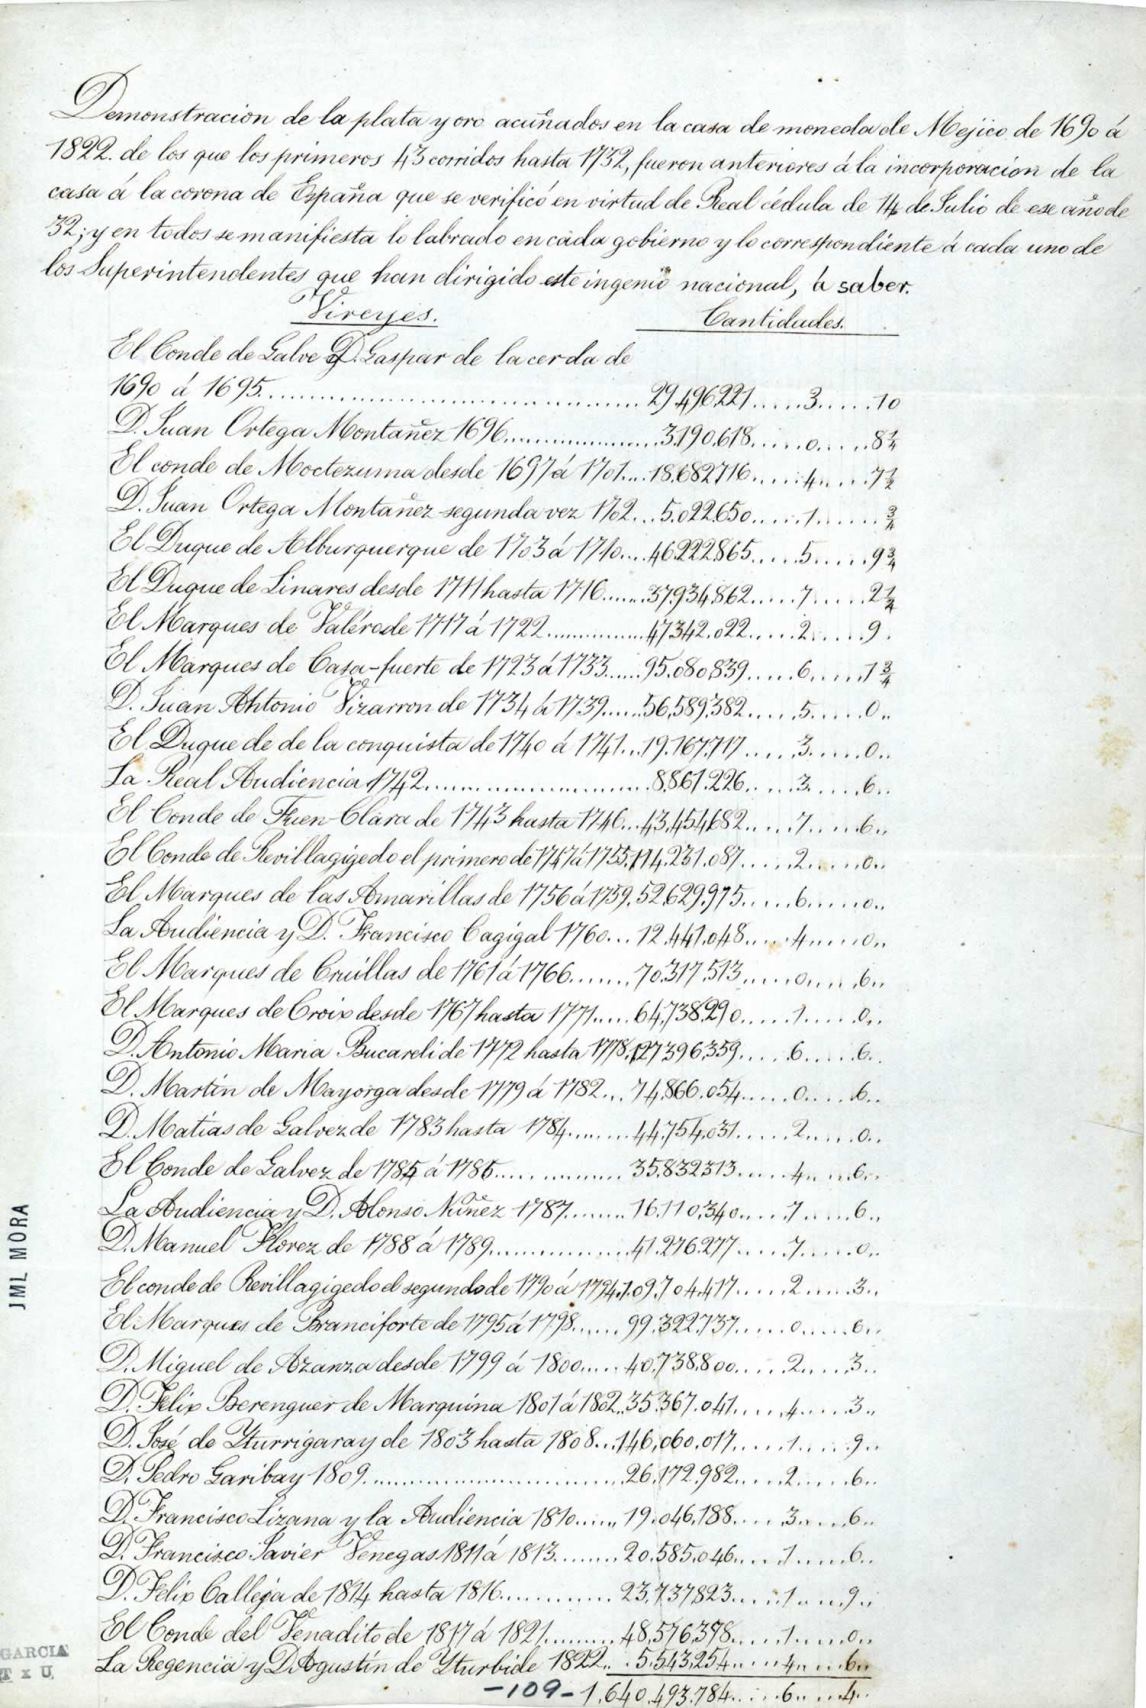 Demonstracion de la plata y oro acuñados en la casa de moneda de Mejico de 1690 á
1822. de los que los primeros 43 corridos hasta 1732, fueron anteriores á la incorporacion de la
casa á la corona de España que se verificó en virtud de Real cédula de 14 de Julio de ese año de
32; y en todos se manifiesta lo labrado en cada gobierno y lo correspondiente á cada uno de
los Superintendentes que han dirigido este ingenio nacional, á saber.
Vireyes. Cantidades.
El Conde de Galve D. Gaspar de la cerda de
1690 á 1695 29,496221 3 10
D. Juan Ortega Montañez 1696 3,190,618 0 8 3/4
El conde de Moctezuma desde 1697 á 1701 18.682716 4 7 1/2
D. Juan Ortega Montañez segunda vez 1702 5.022650 1 3/4
El Duque de Alburquerque de 1703 á 1710 46222865 5 9 3/4
El Duque de Linares desde 1711 hasta 1716 37,934,862 7 2 1/4
El Marques de Valéro de 1717 á 1722 47342.022 2 9.
El Marques de Casa-fuerte de 1723 á 1733 95.080,839 6 1 3/4
D. Juan Antonio Vizarron de 1734 á 1739 56,589,382 5 0
El Duque de de la conquista de 1740 á 1741 19.167,717 3 0
La Real Audiencia 1742 8,861.226 3 6
El Conde de Fuen-Clara de 1743 hasta 1746 43,454,682 7 6
El Conde de Revillagigedo el primero de 1747 á 1755 114.231.087 2 0
El Marques de las Amarillas de 1756 á 1759. 52,629,975 6 0
La Audiencia y D. Francisco Cagigal 1760 12.441.048 4 0
El Marques de Cruillas de 1761 á 1766 70.317.513 0 6
El Marques de Croix desde 1767 hasta 1771 64,738290 1 0
D. Antonio Maria Bucareli de 1772 hasta 1778. 127396,359 6 6
D. Martín de Mayorga desde 1779 á 1782 74,866.054 0 6
D. Matías de Galvez de 1783 hasta 1784 44,754,031 2 0
El Conde de Galvez de 1785 á 1786 35832313 4 6
La Audiencia y D. Alonso Nuñez 1787 16.110.340 7 6
D. Manuel Florez de 1788 á 1789 41.276.277 7 0
El conde de Revillagigedo el segundo de 1790 á 1794. 109,704.417 2 3
El Marques de Branciforte de 1795 á 1798 99.322737 0 6
D. Miguel de Azanza desde 1799 á 1800 40.738.800 2 3
D. Felix Berenguer de Marquina 1801 á 1802 35.367.041 4 3
D. José de Yturrigaray de 1803 hasta 1808 146,060.017 1 9
D. Pedro Garibay 1809 26.172.982 2 6
D. Francisco Lizana y la Audiencia 1810 19.046,188 3 6
D. Francisco Javier Venegas 1811 á 1813 20.585.046 1 6
D. Felix Calleja de 1814 hasta 1816 23,737823 1 9
El Conde del Venadito de 1817 á 1821 48,576,378 1 0
La Regencia y D. Agustín de Yturbide 1822 5.543,254 4 6
-109- 1.640,493.784 6 4
JML MORA
GARCIA
T x U